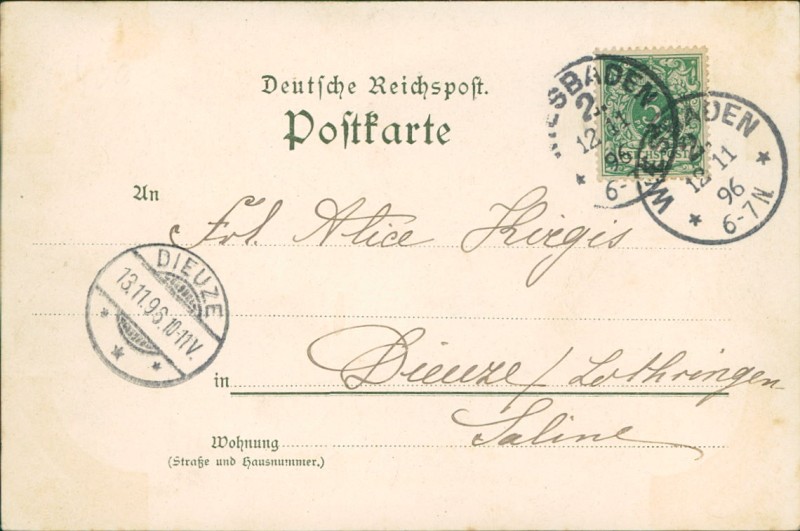 Deutsche Reichspost.
Postkarte
WIESBADEN
2
12 11
96
6-
WIESBADEN
12 11
96
6-7N
An Frl. Alice Kirgis
DIEUZE
13.11.96.10-11V.
in Dieuze / Lothringen
Wohnung Saline
(Straße und Hausnummer.)